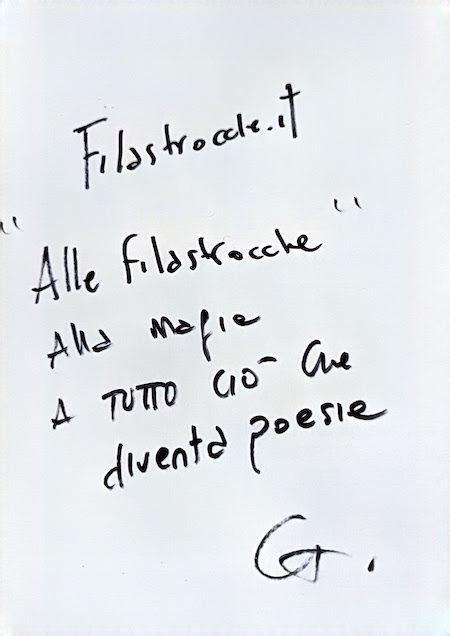 Filastrocche.it
"Alle filastrocche"
Alla mafie
A TUTTO CIÒ che
diventa poesie
G.